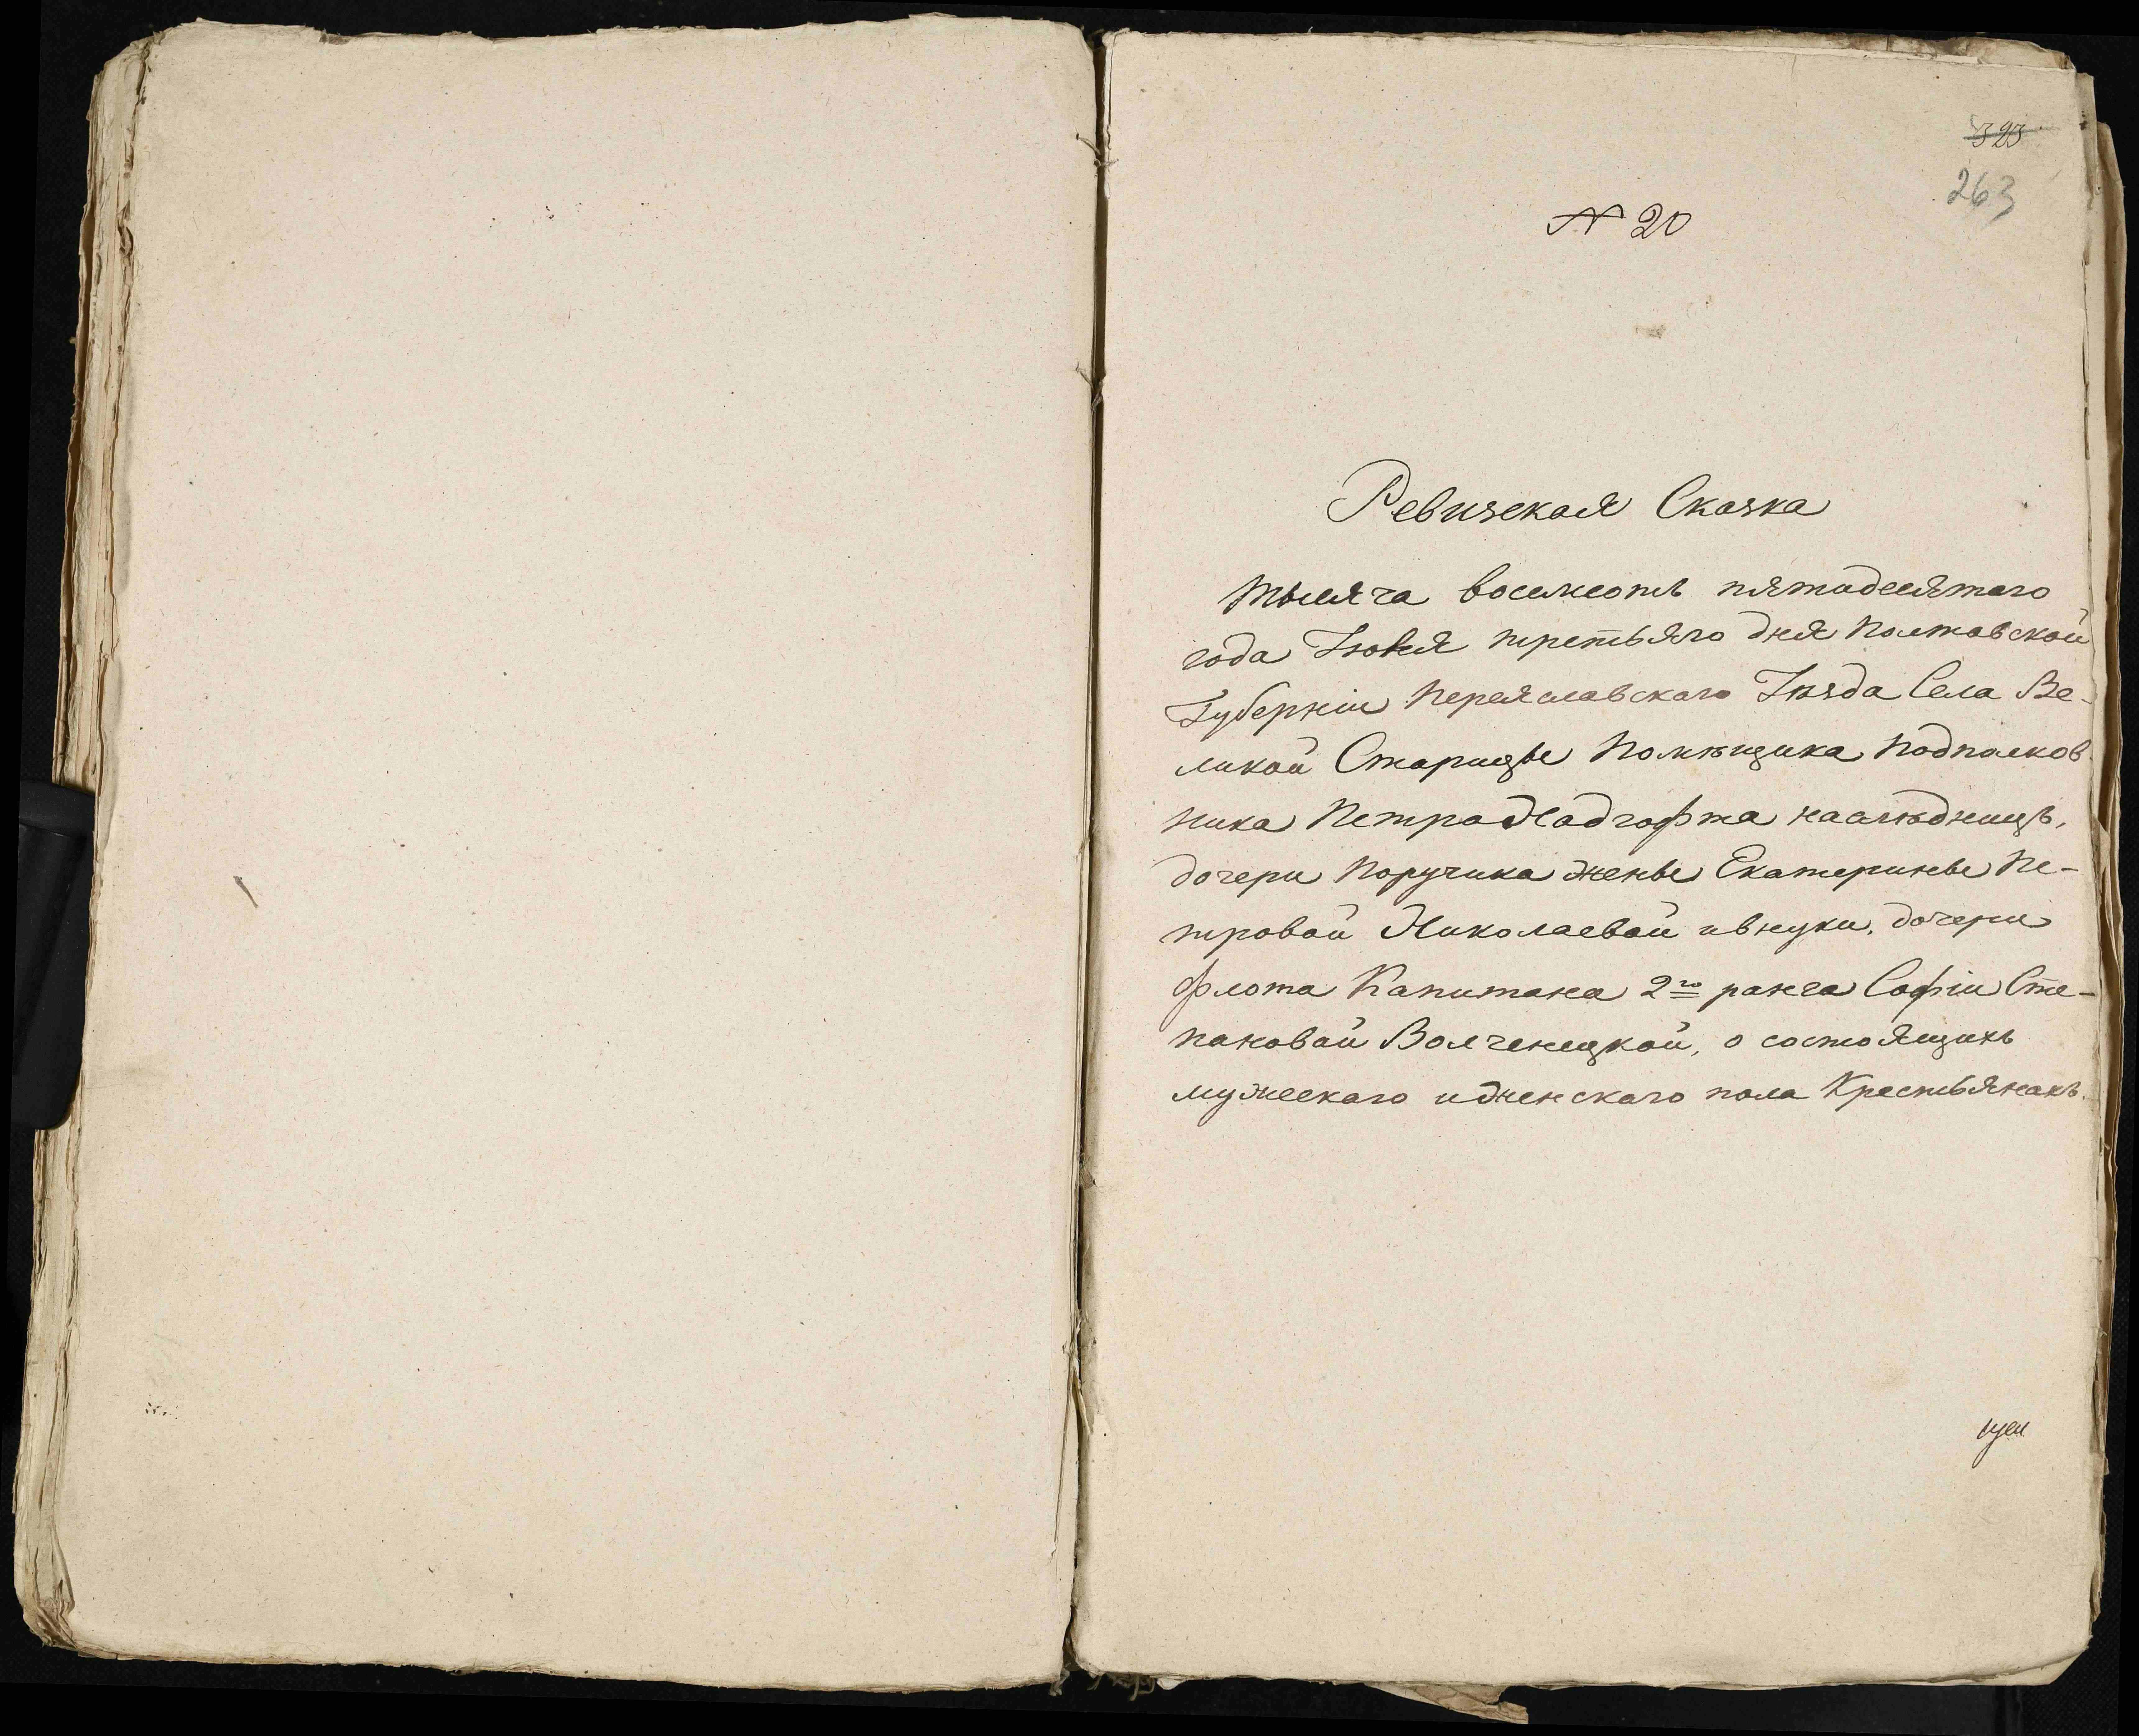 323
263
№ 20
Ревизская Сказка
тысяча восемсотъ пятидесятаго
года Іюня третьяго дня Полтавской
Губерніи Переяславскаго Уѣзда Села Ве-
ликой Старицы Помѣщика Подполков
ника Петра Надгофта наслѣдницъ,
дочери Поручика жены Екатерины Пе-
тровой Николаевой и внуки, дочери
Флота Капитана 2го ранга Софіи Сте-
пановой Волченецкой, о состоящихъ
мужескаго и женскаго пола Крестьянахъ.